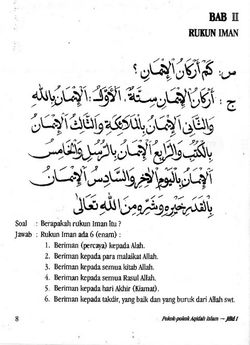 BAB II
RUKUN IMAN
س : كَمْ أَرْكَانُ اْلإِيْمَانِ ؟
ج : أَرْكَانُ اْلإِيْمَانِ سِتَّةٌ . اَلْأَوَّلُ : اَلْإِيْمَانُ بِاللهِ
وَالثَّانِى اَلْإِيْمَانُ بِالْمَلَائِكَةِ وَالثَّالِثُ اَلْإِيْمَانُ
بِالْكُتُبِ وَالرَّابِعُ اَلْإِيْمَانُ بِالرُّسُلِ وَالْخَامِسُ
اَلْإِيْمَانُ بِالْيَوْمِ الْآخِرِ وَالسَّادِسُ اَلْإِيْمَانُ
بِالْقَدَرِ خَيْرِهِ وَشَرِّهِ مِنَ اللهِ تَعَالَى
Soal : Berapakah rukun Iman itu ?
Jawab : Rukun Iman ada 6 (enam) :
1. Beriman (percaya) kepada Alah.
2. Beriman kepada para malaikat Allah.
3. Beriman kepada semua kitab Allah.
4. Beriman kepada semua Rasul Allah.
5. Beriman kepada hari Akhir (Kiamat).
6. Beriman kepada takdir, yang baik dan yang buruk dari Allah swt.
8 Pokok-pokok Aqidah Islam — Jilid I